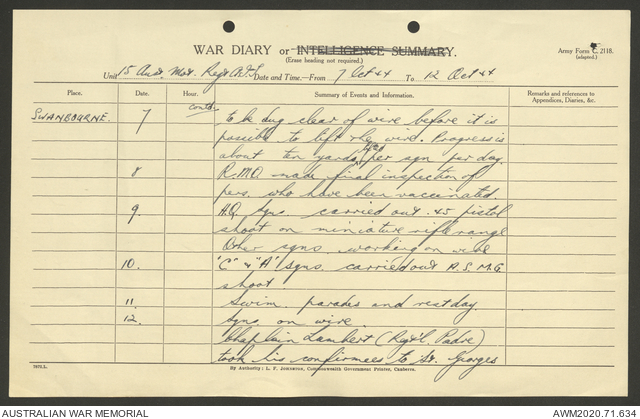 WAR DIARY or INTELLIGENCE SUMMARY.
(Erase heading not required.)
Army Form C. 2118.
(adapted.)
Unit 15 Aust. Mot. Regt A.I.F. Date and Time.—From 7 Oct 44 To 12 Oct 44
Place. Date. Hour. Summary of Events and Information. Remarks and references to Appendices, Diaries, &c.
SWANBOURNE. 7 contd. to be dug clear of wire before it is
possible to lift the wire. Progress is
about ten yards per sqn per day.
8 R.M.O. made final inspection of
pers. who have been vaccinated.
9. H.Q. Sqns. carried out .45 pistol
shoot on miniature rifle range
Other sqns. working on wire
10. "C" & "A" Sqns. carried out A.S.M.G.
shoot
11. Swim. parades and rest day.
12. Sqns. on wire.
Chaplain Lambert (Regtl. Padre)
took his confirmees to St. Georges
7970.L.
By Authority: L. F. Johnston, Commonwealth Government Printer, Canberra.
AUSTRALIAN WAR MEMORIAL
AWM2020.71.634